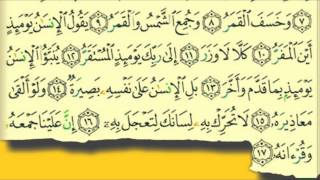 ﴿٧﴾ وَخَسَفَ ٱلْقَمَرُ ﴿٨﴾ وَجُمِعَ ٱلشَّمْسُ وَٱلْقَمَرُ ﴿٩﴾ يَقُولُ ٱلْإِنسَٰنُ يَوْمَئِذٍ
أَيْنَ ٱلْمَفَرُّ ﴿١٠﴾ كَلَّا لَا وَزَرَ ﴿١١﴾ إِلَىٰ رَبِّكَ يَوْمَئِذٍ ٱلْمُسْتَقَرُّ ﴿١٢﴾ يُنَبَّؤُا۟ ٱلْإِنسَٰنُ
يَوْمَئِذٍۭ بِمَا قَدَّمَ وَأَخَّرَ ﴿١٣﴾ بَلِ ٱلْإِنسَٰنُ عَلَىٰ نَفْسِهِۦ بَصِيرَةٌ ﴿١٤﴾ وَلَوْ أَلْقَىٰ
مَعَاذِيرَهُۥ ﴿١٥﴾ لَا تُحَرِّكْ بِهِۦ لِسَانَكَ لِتَعْجَلَ بِهِۦٓ ﴿١٦﴾ إِنَّ عَلَيْنَا جَمْعَهُۥ
وَقُرْءَانَهُۥ ﴿١٧﴾